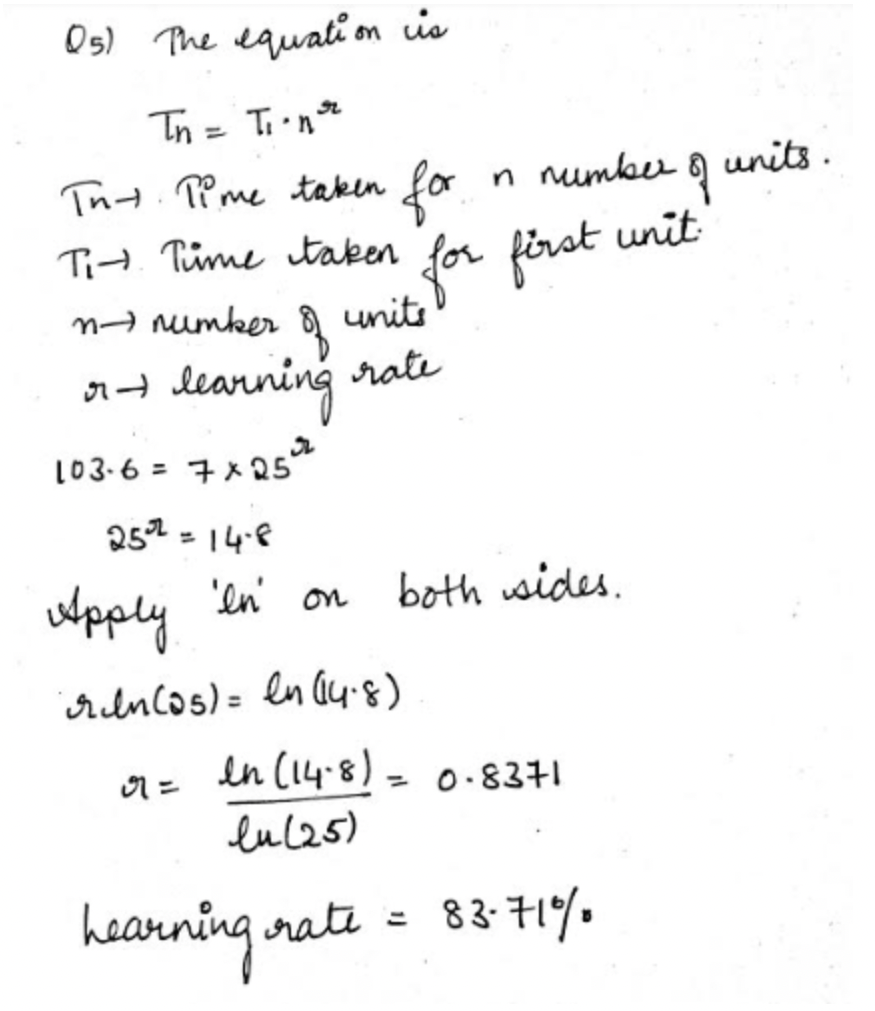 Q5) The equation is
Tn = T₁ · nʳ
Tn → Time taken for n number of units.
T₁ → Time taken for first unit.
n → number of units
r → learning rate
103.6 = 7 × 25ʳ
25ʳ = 14.8
Apply 'ln' on both sides.
r ln(25) = ln(14.8)
r = ln(14.8) / ln(25) = 0.8371
Learning rate = 83.71%